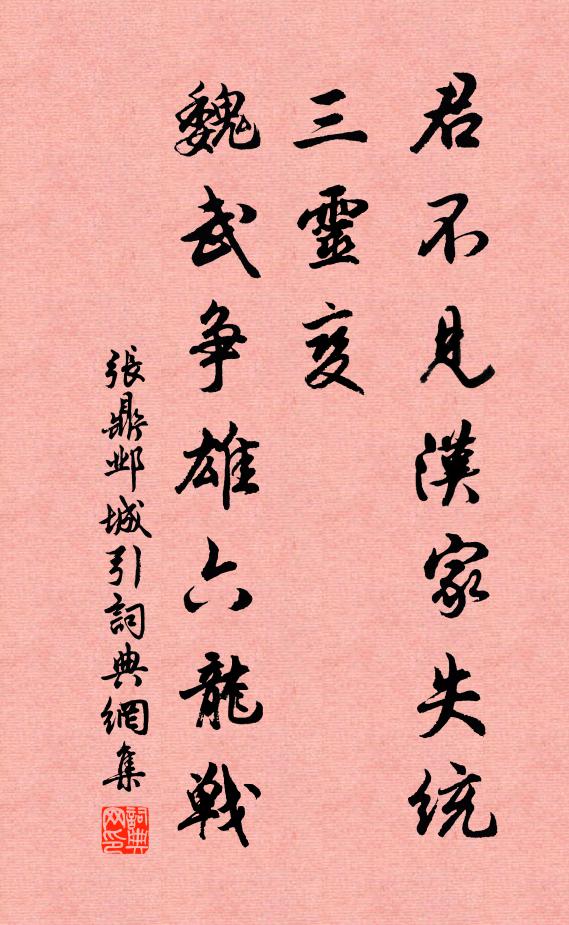 君不見漢家失統
三靈变
魏武争雄六龍戦
張鼎邺城引詞典網集
詞典网印